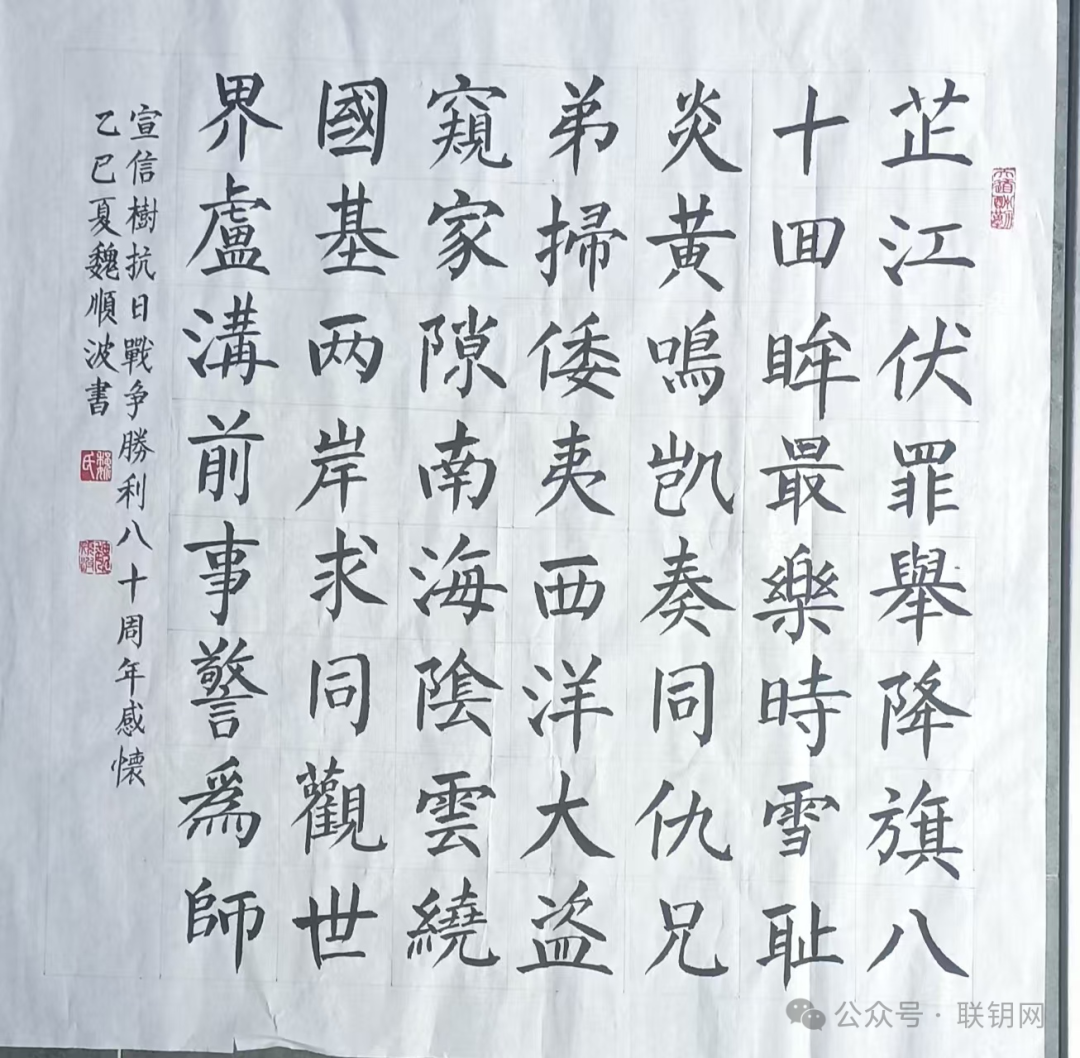 芷江伏罪舉降旗八
十回眸最樂時雪耻
炎黄鳴凱奏同仇兄
弟掃倭夷西洋大盗
窺家隙南海陰雲繞
國基两岸求同觀世
界盧溝前事警爲師
宣信樹抗日戰争勝利八十周年感懷
乙巳夏魏順波書
公众号·联钥网